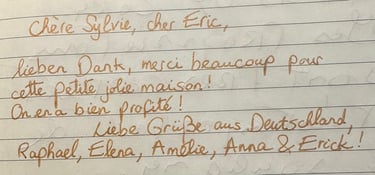 Chère Sylvie, cher Eric,
lieben Dank, merci beaucoup pour
cette petite jolie maison!
On en a bien profité!
Liebe Grüße aus Deutschland,
Raphael, Elena, Amélie, Anna & Erick!